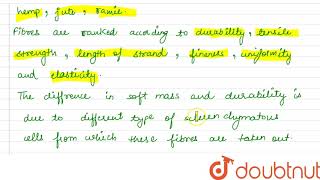 hemp, jute, ramie.
Fibres are ranked according to durability, tensile
strength, length of strand, fineness, uniformity
and elasticity.
The difference in soft mass and durability is
due to different type of scleren chymatous
cells from which these fibres are taken out.
doubtnut